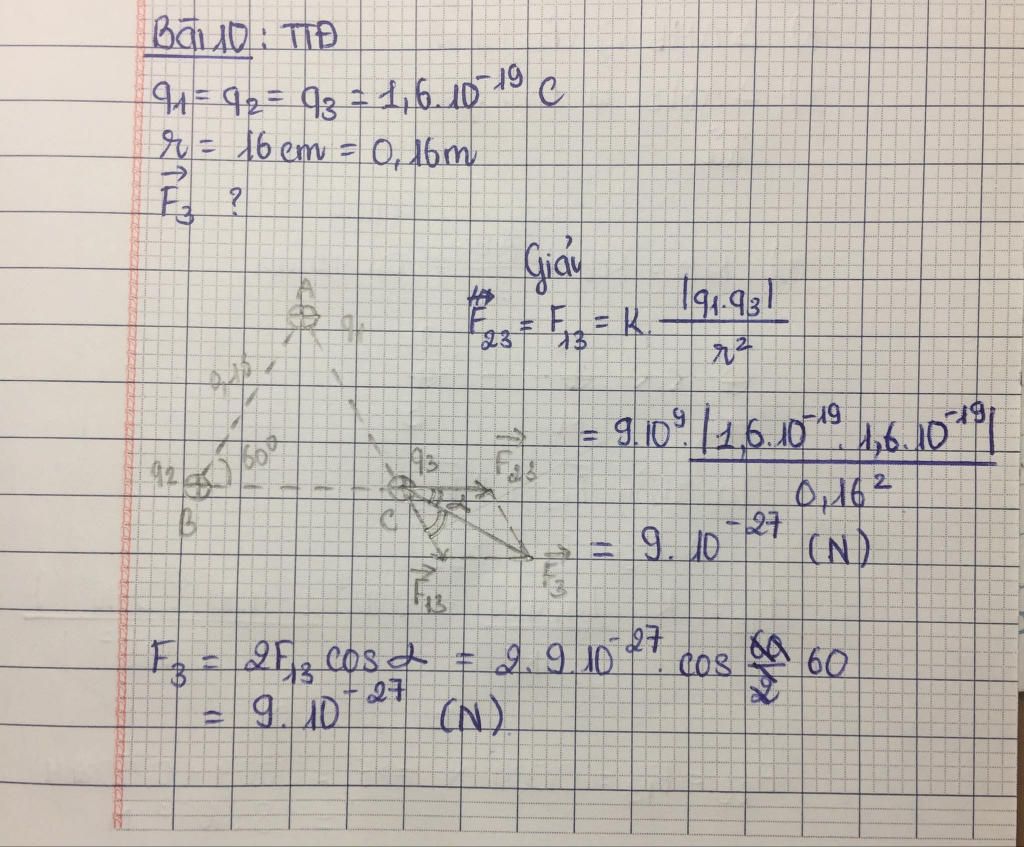 Bài 10 : TTĐ
q1 = q2 = q3 = 1,6.10⁻¹⁹ C
r = 16 cm = 0,16m
F⃗₃ ?
Giải
F₂₃ = F₁₃ = K. |q1.q3| / r²
= 9.10⁹. |1,6.10⁻¹⁹ . 1,6.10⁻¹⁹| / 0,16²
= 9. 10⁻²⁷ (N)
A
q1
60°
q2
B
q3
C
F⃗₂₃
α
F⃗₁₃
F⃗₃
F₃ = 2F₁₃ cos α = 2. 9.10⁻²⁷. cos 60
= 9. 10⁻²⁷ (N)